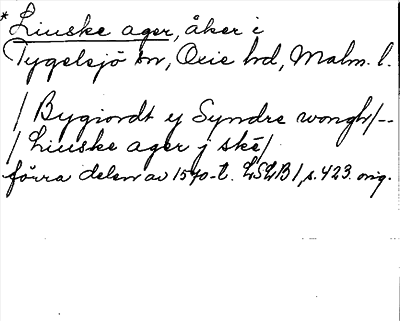 * Liuske ager, åker i
Tygelsjö sn, Oxie hd, Malm. l.
/ Bygiordt y Syndre wongh/--
/ Liuske ager j skē/
förra delen av 1540-t. LSLB 1, s. 423. orig.